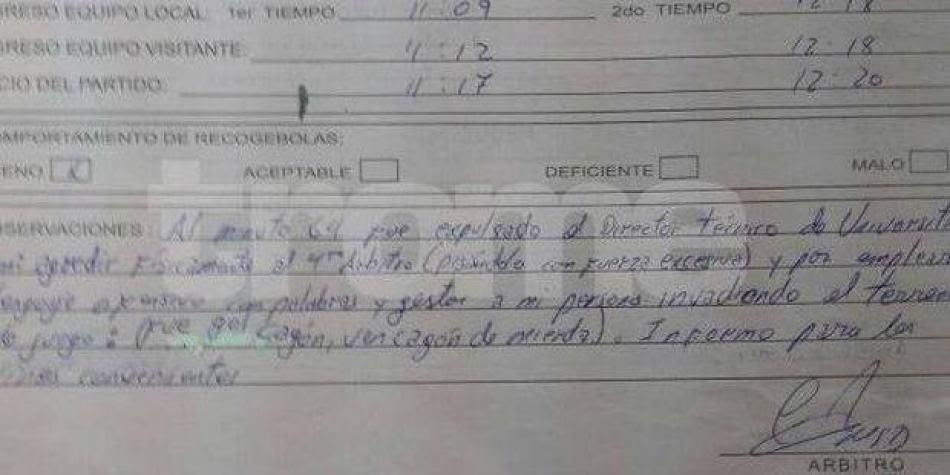 GRESO EQUIPO LOCAL 1er TIEMPO 11:09 2do TIEMPO 12:18
GRESO EQUIPO VISITANTE: 11:12 12:18
CIO DEL PARTIDO: 11:17 12:20
OMPORTAMIENTO DE RECOGEBOLAS:
ENO X ACEPTABLE DEFICIENTE MALO
trome
SERVACIONES Al minuto 69 fue expulsado el Director Técnico de Universit
agredir físicamente al 4to Arbitro (pisándole con fuerza excesiva) y por emplear
enguaje ofensivo con palabras y gestos a mi persona invadiendo el terren
juego: (fue gol cagón, ven cagón de mierda). Informo para los
fines convenientes
ARBITRO